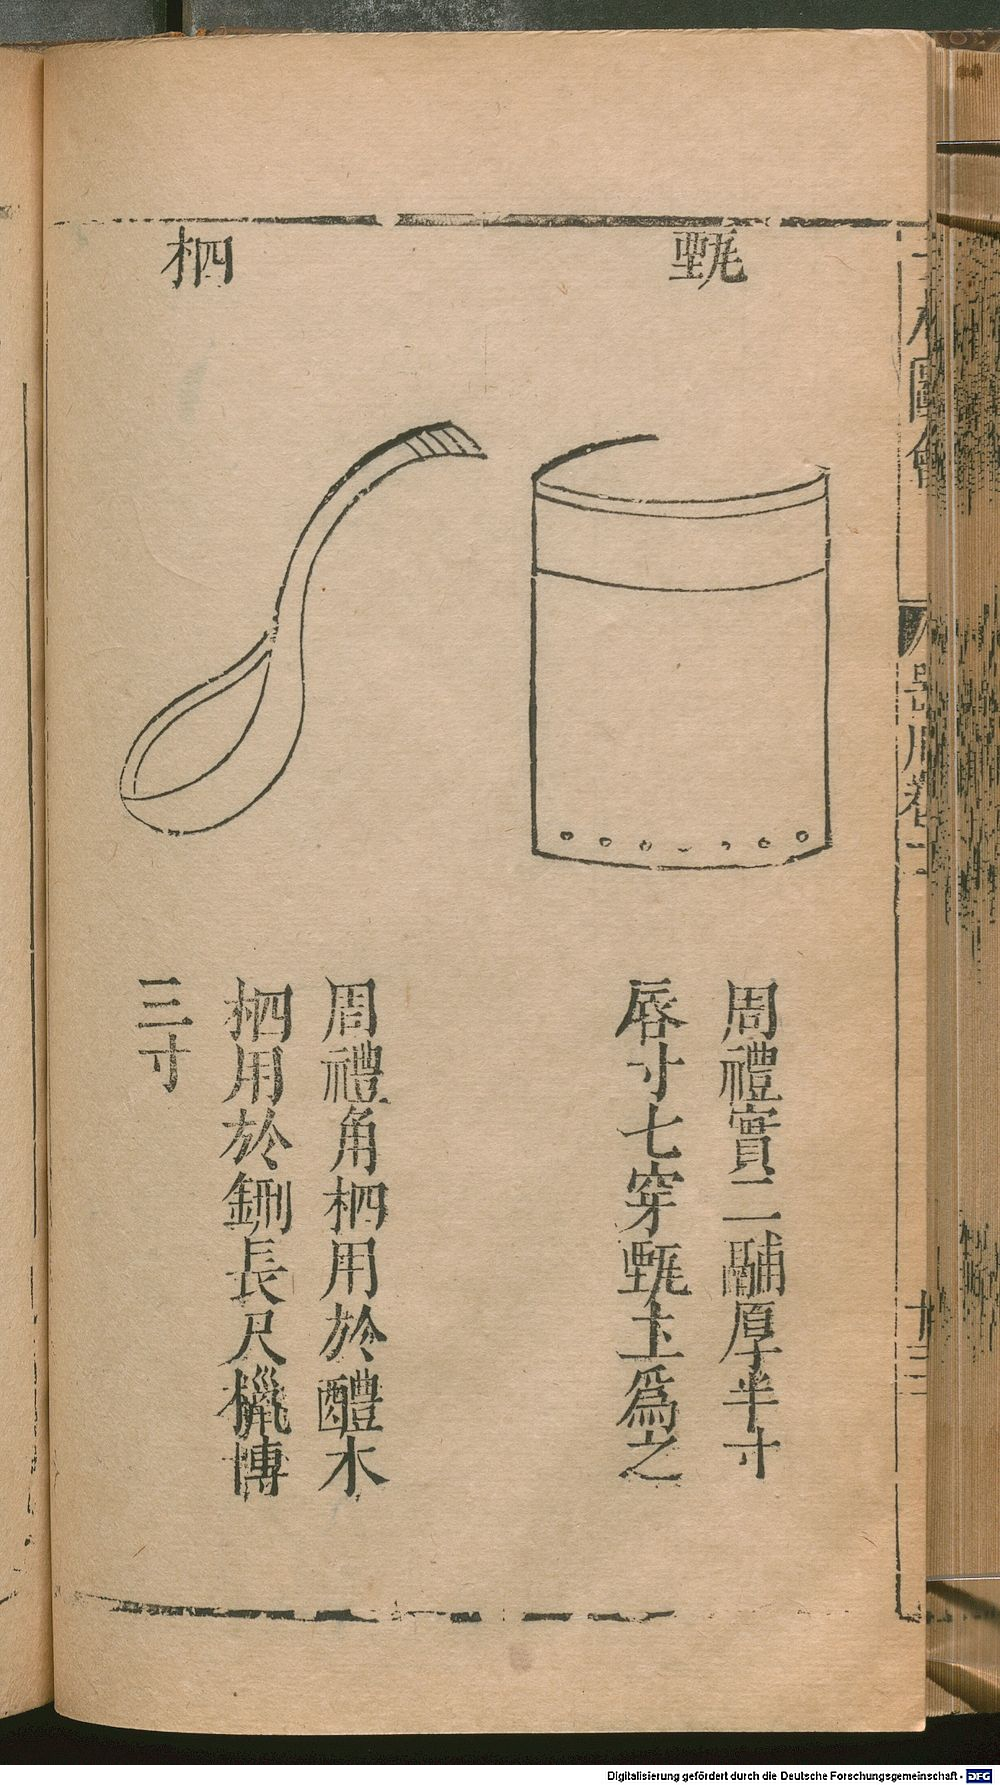 甄
周禮實二鬴厚半寸
唇寸七穿甄土爲之
柶
周禮角柶用於醴木
柶用於鉶長尺櫼博
三寸
Digitalisierung gefördert durch die Deutsche Forschungsgemeinschaft - DFG